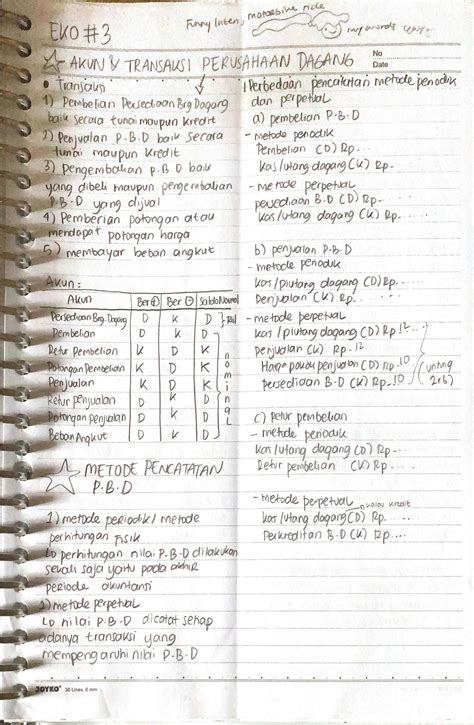 EKO #3
Funny Inten, motorbike ride
my words
No
Date
AKUN & TRANSAKSI PERUSAHAAN DAGANG
• Transaksi
1) Pembelian Persediaan Brg Dagang
baik secara tunai maupun kredit
2) Penjualan P.B.D baik secara
tunai maupun kredit
3) Pengembalian P.B.D baik
yang dibeli maupun pengembalian
P.B.D yang dijual
4) Pemberian potongan atau
mendapat potongan harga
5) membayar beban angkut
Akun:
Akun Ber (+) Ber (-) Saldo Normal
Persediaan Brg. Dagang D K D } Riil
Pembelian D K D
Retur Pembelian K D K
Potongan Pembelian K D K
Penjualan K D K
Retur penjualan D K D
Potongan penjualan D K D
Beban Angkut D K D
nominal
METODE PENCATATAN
P.B.D
1) metode periodik / metode
perhitungan fisik
↳ perhitungan nilai P.B.D dilakukan
sekali saja yaitu pada akhir
periode akuntansi
2) metode perpetual
↳ nilai P.B.D dicatat setiap
adanya transaksi yang
mempengaruhi nilai P.B.D
Perbedaan pencatatan metode periodik
dan perpetual
a) pembelian P.B.D
- metode periodik
Pembelian (D) Rp..
Kas/utang dagang (K) Rp..
- metode perpetual
persediaan B.D (D) Rp..
Kas/utang dagang (K) Rp..
b) penjualan P.B.D
- metode periodik
Kas/piutang dagang (D) Rp...
Penjualan (K) Rp..
- metode perpetual
Kas/piutang dagang (D) Rp.12...
penjualan (K) Rp..12
Harga pokok penjualan (D) Rp..10
Persediaan B.D (K) Rp..10
(untung
2rb)
c) retur pembelian
- metode periodik
Kas/utang dagang (D) Rp....
Retur pembelian (K) Rp...
- metode perpetual
kalau kredit
Kas/utang dagang (D) Rp....
B.D (K) Rp....
JOYKO 36 Lines, 6 mm